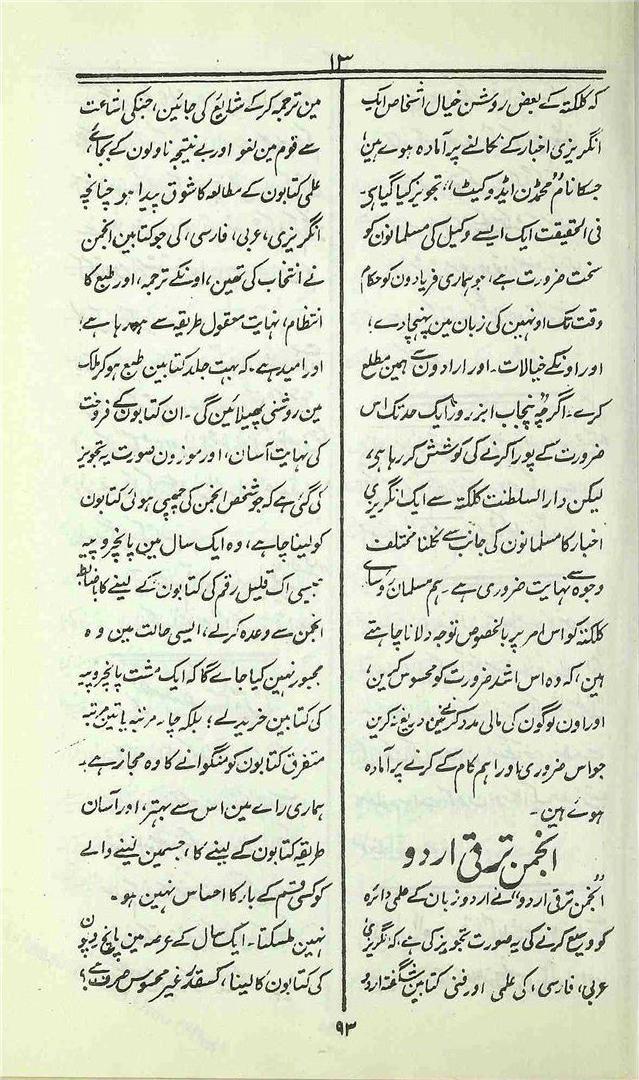 ۱۳
کہ کلکتہ کے بعض روشن خیال اشخاص ایک
انگریزی اخبار کے نکالنے پر آمادہ ہوے ہین؛
جسکا نام "محمڈن ایڈوکیٹ"، تجویز کیا گیا ہی۔
فی الحقیقت ایک ایسے وکیل کی مسلمانون کو
سخت ضرورت ہے، جو ہماری فریادون کو حکام
وقت تک اونہین کی زبان مین پہنچا دے؛
اور اونکے خیالات۔ اور ارادون سے ہمین مطلع
کرے۔ اگرچہ "پنجاب ابزرور" ایک حد تک اس
ضرورت کے پورا کرنے کی کوشش کر رہا ہی،
لیکن دارالسلطنت کلکتہ سے ایک انگریزی
اخبار کا مسلمانون کی جانب سے نکلنا مختلف
وجوہ سے نہایت ضروری ہے۔ ہم مسلمان روسای
کلکتہ کو اس امر پر بالخصوص توجہ دلانا چاہتے
ہین، کہ وہ اس اشد ضرورت کو محسوس کرین؛
اور اون لوگون کی مالی مدد کرنے مین دریغ نہ کرین
جو اس ضروری اور اہم کام کے کرنے پر آمادہ
ہوے ہین۔
انجمن ترقی اردو
"انجمن ترقی اردو" نے اردو زبان کے علمی دائرہ
کو وسیع کرنے کی یہ صورت تجویز کی ہے، کہ انگریزی
عربی، فارسی، کی علمی اور فنی کتابین شگفتہ اردو
مین ترجمہ کر کے شایع کی جائین، جنکی اشاعت
سے قوم مین لغو اور بے نتیجہ ناولون کے بجاے،
علمی کتابون کے مطالعہ کا شوق پیدا ہو چنانچہ
انگریزی، عربی، فارسی، کی جو کتابین انجمن
نے انتخاب کی تھین، اونکے ترجمہ، اور طبع کا
انتظام، نہایت معقول طریقہ سے ہو رہا ہے؛
اور امید ہے۔ کہ بہت جلد کتابین طبع ہو کر ملک
مین روشنی پھیلائین گی۔ ان کتابون کے فروخت
کی نہایت آسان، اور موزون صورت یہ تجویز
کی گئی ہے کہ جو شخص انجمن کی چھپی ہوئی کتابون
کو لینا چاہے، وہ ایک سال مین پانچروپیہ
جیسی اک قلیل رقم کی کتابون کے لینے کا باضابطہ
انجمن سے وعدہ کرلے، ایسی حالت مین وہ
مجبور نہین کیا جاے گا کہ ایک مشت پانچروپیہ
کی کتابین خرید لے؛ بلکہ چار مرتبہ یا تین مرتبہ
متفرق کتابون کو منگوانے کا وہ مجاز ہے۔
ہماری راے مین اس سے بہتر، اور آسان
طریقہ کتابون کے لینے کا، جسمین لینے والے
کو کسی قسم کے بار کا احساس نہین ہو۔
نہین ملسکتا۔ ایک سال کے عرصہ مین پانچ روپون
کی کتابون کا لینا، کسقدر غیر محسوس صرف ہے؟
۹۳